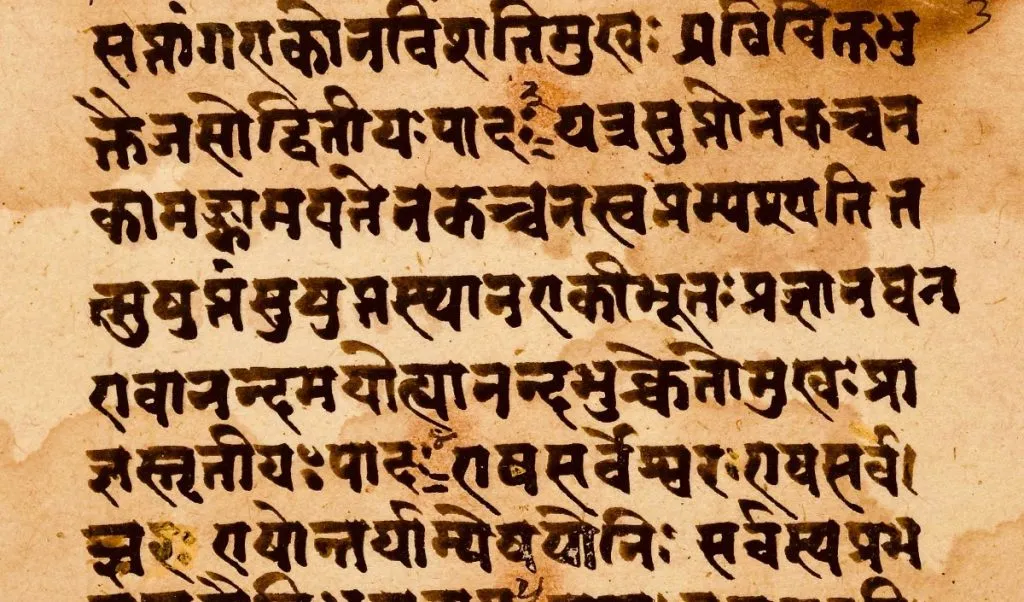 सप्तांगएकोनविशतिमुखः प्रविविक्तभु
क्तैजसोद्वितीयःपादः ३ यत्रसुप्तोनकञ्चन
कामङ्कामयतेनकञ्चनस्वप्नम्पश्यतित
त्सुषुप्तंसुषुप्तस्थानएकीभूतःप्रज्ञानघन
एवानन्दमयोह्यानन्दभुक्चेतोमुखःप्रा
ज्ञस्तृतीयःपादः ४ एषसर्वेश्वरःएषसर्व।
ज्ञःएषोन्तर्याम्येषयोनिः सर्वस्यप्रभ